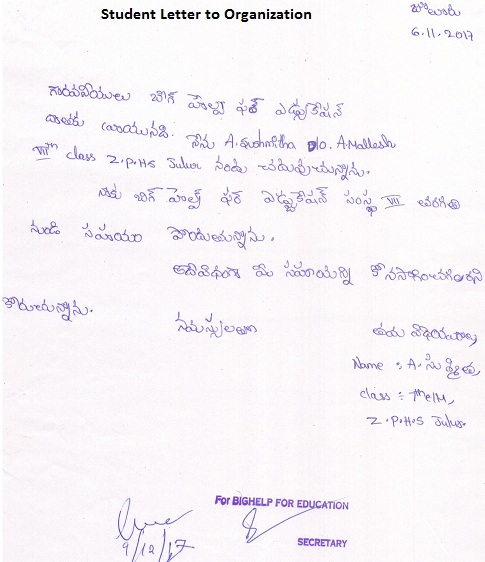 Student Letter to Organization
జూలూరు
6.11.2017
గౌరవనీయులు బిగ్ హెల్ప్ ఫర్ ఎడ్యుకేషన్
దాతకు వ్రాయునది. నేను A.Sushmitha D/o. A.Mallesh
VIIth class Z.P.H.S Julur నందు చదువుచున్నాను.
నాకు బిగ్ హెల్ప్ ఫర్ ఎడ్యుకేషన్ సంస్థ VII తరగతి
నుండి సహాయం పొందుతున్నాను.
అదేవిధంగా మీ సహాయాన్ని కొనసాగించగలరని
కోరుచున్నాను.
నమస్సులతో
తమ విధేయురాలు
Name : A. సుష్మిత,
class :
Z.P.H.S Julur.
For BIGHELP FOR EDUCATION
9/12/17
SECRETARY